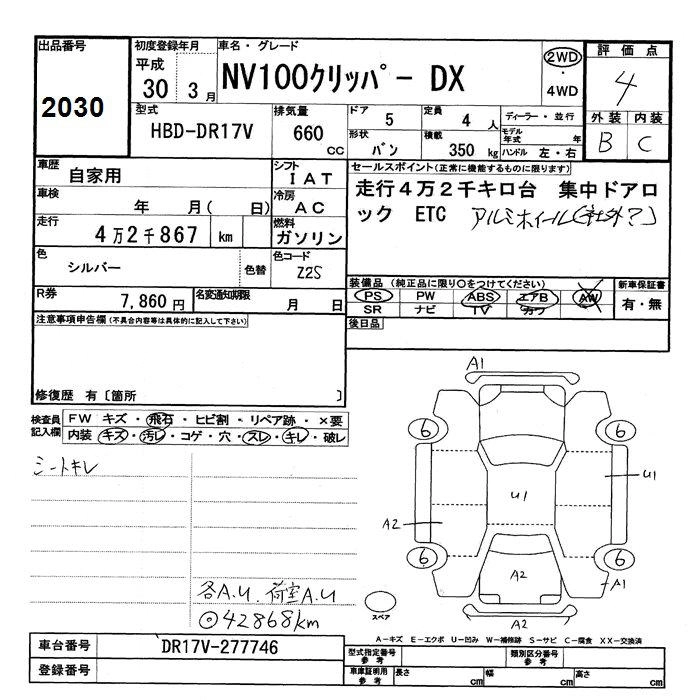 出品番号 2030
初度登録年月 平成 30 3月
車名・グレード NV100クリッパー DX
2WD ・ 4WD
評価点 4
外装 B 内装 C
型式 HBD-DR17V
排気量 660 CC
ドア 5 定員 4 人
形状 バン 積載 350 kg
ディーラー・並行
モデル年式 年
ハンドル 左・右
車歴 自家用
シフト IAT
車検 年 月( 日)
冷房 AC
走行 4万2千867 km
燃料 ガソリン
色 シルバー 色替
色コード Z2S
R券 7,860円
名変通知期限 月 日
セールスポイント(正常に機能するものに限ります)
走行4万2千キロ台 集中ドアロ
ック ETC アルミホイール(社外?)
装備品 (純正品に限り○をつけてください)
PS PW ABS エアB AW
SR ナビ TV カワ
新車保証書
有・無
後日品
注意事項申告欄(不具合内容等は具体的に記入して下さい)
修復歴 有〔箇所 〕
検査員記入欄
FW キズ・飛石・ヒビ割・リペア跡・×要
内装 キズ・汚レ・コゲ・穴・スレ・キレ・破レ
シートキレ
各A.U. 荷室A.U
◎42868km
A1
6 6
U1
U1
A2
6 6
A2
A1
A2
スペア
A−キズ E−エクボ U−凹み W−補修跡 S−サビ C−腐食 XX−交換済
車台番号 DR17V-277746
登録番号
型式指定番号 参考
類別区分番号 参考
車庫証明用 参考 長さ cm 幅 cm 高さ cm